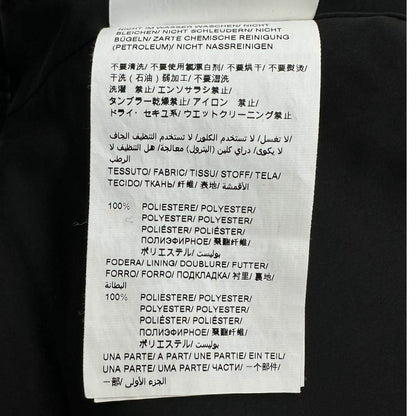 NICHT IM WASSER WASCHEN/ NICHT
BLEICHEN/ NICHT SCHLEUDERN/ NICHT
BÜGELN/ ZARTE CHEMISCHE REINIGUNG
(PETROLEUM)/ NICHT NASSREINIGEN
不要清洗/ 不要使用氯漂白剂/ 不要烘干/ 不要熨烫/
干洗（石油）弱加工/ 不要湿洗
洗濯 禁止/ エンソサラシ禁止/
タンブラー乾燥禁止/ アイロン 禁止/
ドライ・セキユ系/ ウエットクリーニング禁止/
لا تغسل/ لا تستخدم الكلور/ لا تستخدم التنظيف الجاف/
لا يكوى/ دراي كلين (البترول) معالجة/ هل التنظيف لا
الرطب
TESSUTO/ FABRIC/ TISSU/ STOFF/ TELA/
TECIDO/ ТКАНЬ/ 纤维/ 表地/ الأقمشة/
100% POLIESTERE/ POLYESTER/
POLYESTER/ POLYESTER/
POLIÉSTER/ POLIÉSTER/
ПОЛИЭФИРНОЕ/ 聚酯纤维/
ポリエステル/ بوليستر/
FODERA/ LINING/ DOUBLURE/ FUTTER/
FORRO/ FORRO/ ПОДКЛАДКА/ 衬里/ 裏地/
البطانة
100% POLIESTERE/ POLYESTER/
POLYESTER/ POLYESTER/
POLIÉSTER/ POLIÉSTER/
ПОЛИЭФИРНОЕ/ 聚酯纤维/
ポリエステル/ بوليستر/
UNA PARTE/ A PART/ UNE PARTIE/ EIN TEIL/
UNA PARTE/ UMA PARTE/ ЧАСТИ/ 一个部件/
一部/ الجزء الأولى/